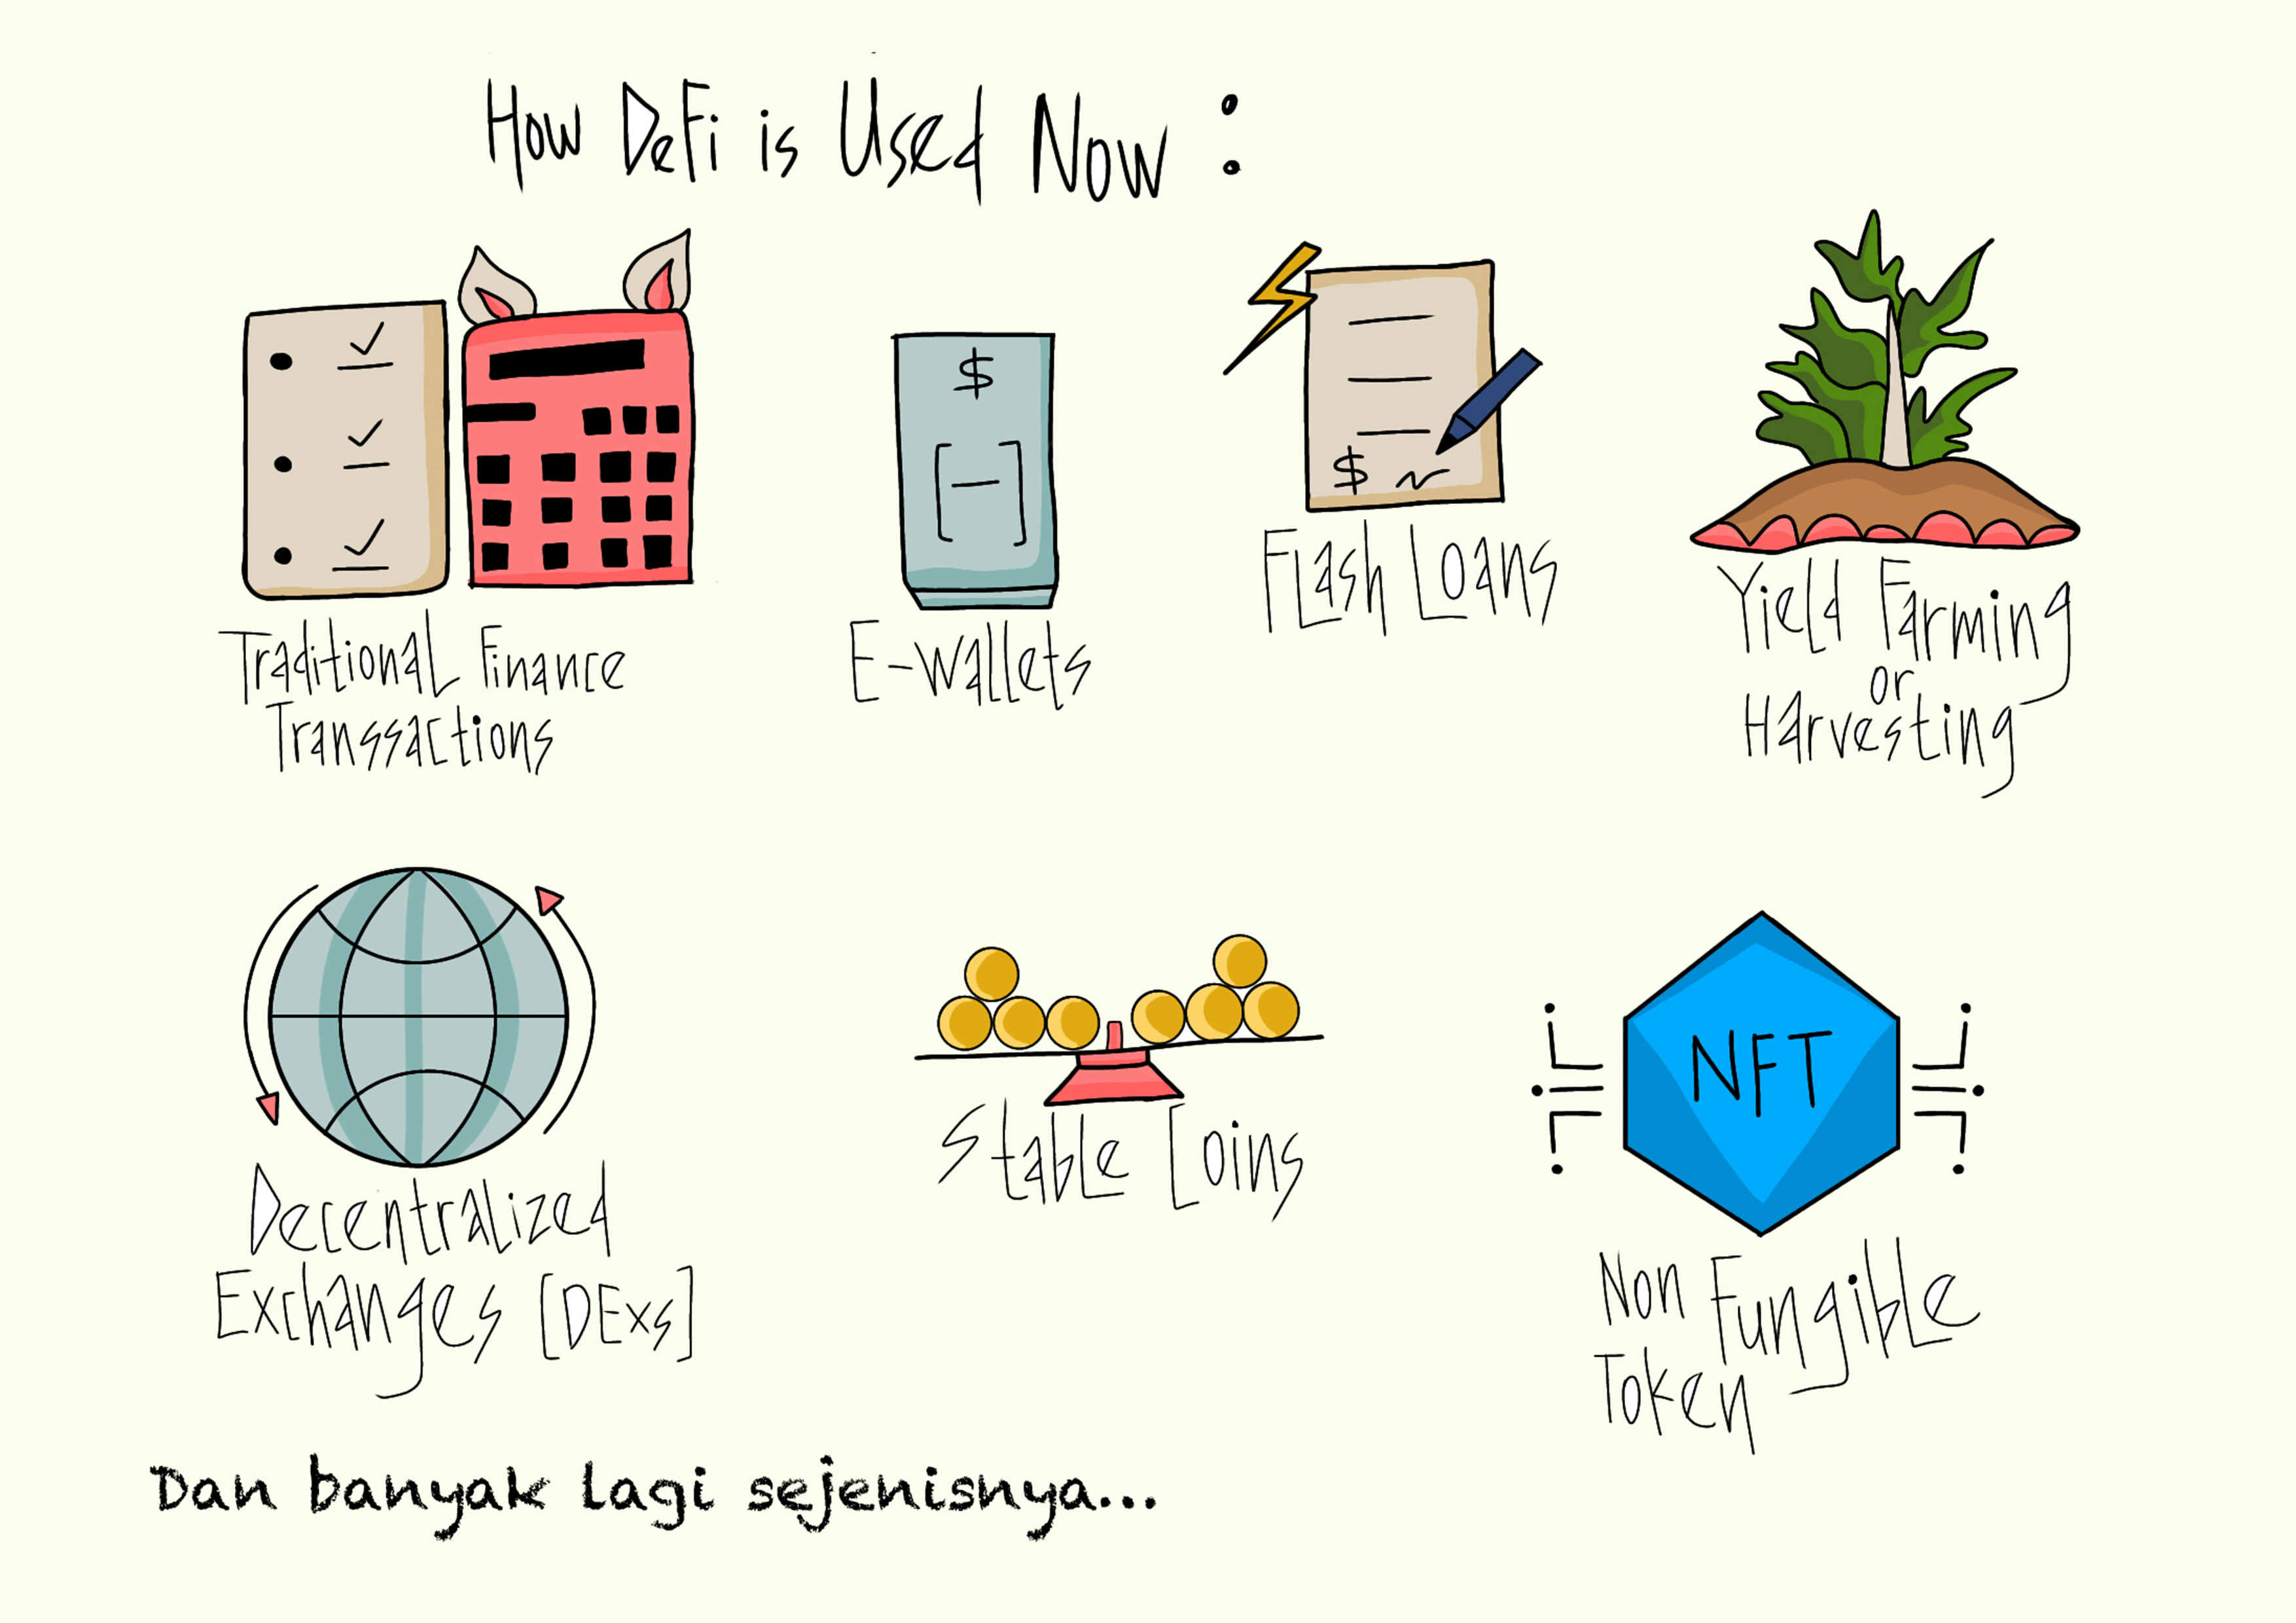 How DeFi is Used Now :
$
$
Traditional Finance
Transsactions
E-Wallets
Flash Loans
Yield Farming
or
Harvesting
NFT
Decentralized
Exchanges [DExs]
Stable Coins
Non Fungible
Token
Dan banyak lagi sejenisnya...